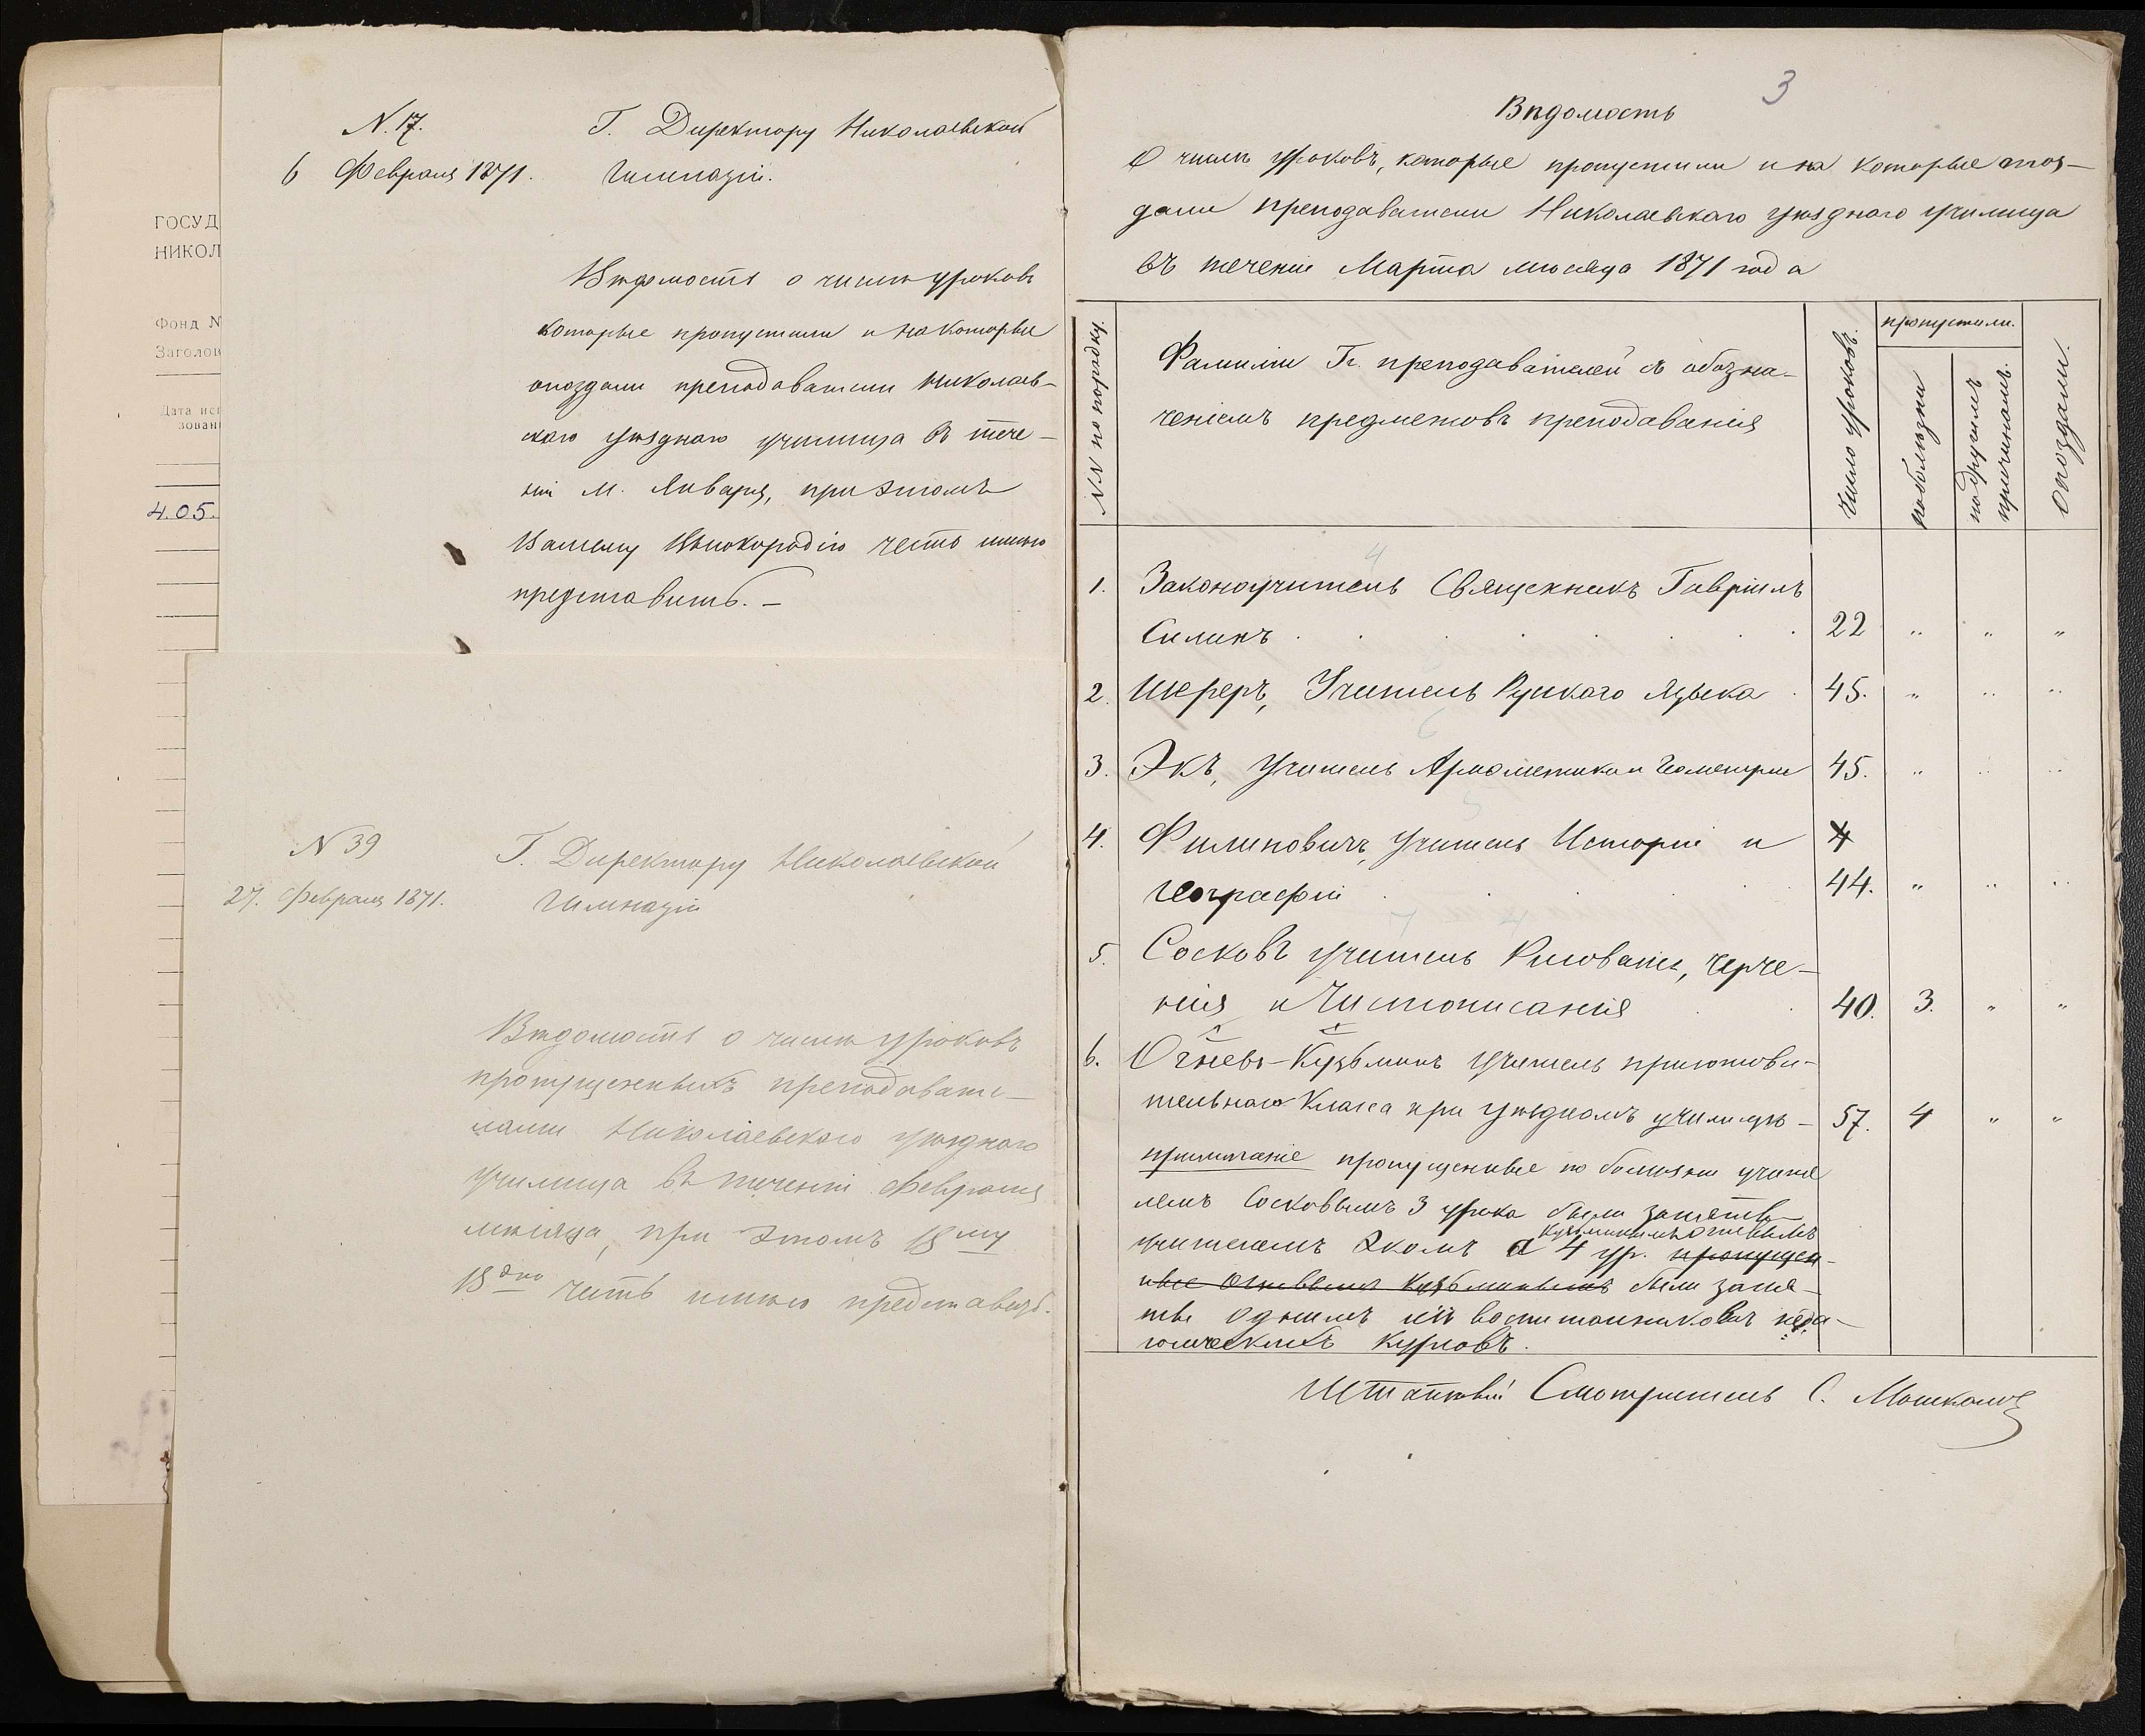 ГОСУД
НИКОЛ
Фонд N
Заголов
Дата исп
зован
405.
N. 17.
6 Февраля 1871.
Г. Директору Николаевской
Гимназіи.
Вѣдомость о числѣ уроковъ
которые пропустили и на которые
опоздали преподаватели Николаев-
скаго уѣзднаго училища въ тече-
ніи М. Января, при этомъ
Вашему Высокородію честь имѣю
представить. —
N 39
27. Февраля 1871.
Г. Директору Николаевской
Гимназіи
Вѣдомость о числѣ уроковъ
пропущенныхъ преподавате-
лями Николаевского уѣзднаго
училища въ теченіи Февраля
мѣсяца, при этомъ Вму
Вдію честь имѣю представить.
3
Вѣдомость
О числѣ уроковъ, которые пропустили и на которые опоз-
дали преподаватели Николаевскаго уѣзднаго училища
въ теченіи Марта мѣсяца 1871 года
NN по порядку.
Фамиліи Гг. преподавателей съ обозна-
ченіемъ предметовъ преподаванія
Число уроковъ.
пропустили.
по болѣзни
по другимъ
причинамъ.
Опоздали.
4
1. Законоучитель Священникъ Гавріилъ
Силинъ . . . . . . . 22 " " "
2. Шереръ, Учитель Рускаго Языка . 45. " " "
6
3. Экъ, Учитель Ариѳметики и Геометріи 45. " " "
5
4. Филиповичъ, Учитель Исторіи и 4
Географіи . . . . 44. " " "
7 4
5. Сосковъ учитель Рисованія, Черче-
нія и Чистописанія . . 40. 3. " "
6. Огневъ-Кузьминъ Учитель приготови-
тельнаго Класса при уѣздномъ училищѣ - 57. 4 " "
примѣчаніе пропущенные по болѣзни учите
лемъ Сосковымъ 3 урока были заняты
Кузьминымъ Огневымъ
учителемъ Экомъ а 4 ур. пропущен-
ные Огневымъ Кузьминымъ были заня-
ты однимъ изъ воспитанниковъ педа-
гогическихъ курсовъ.
Штатный Смотритель С. Мошкалов